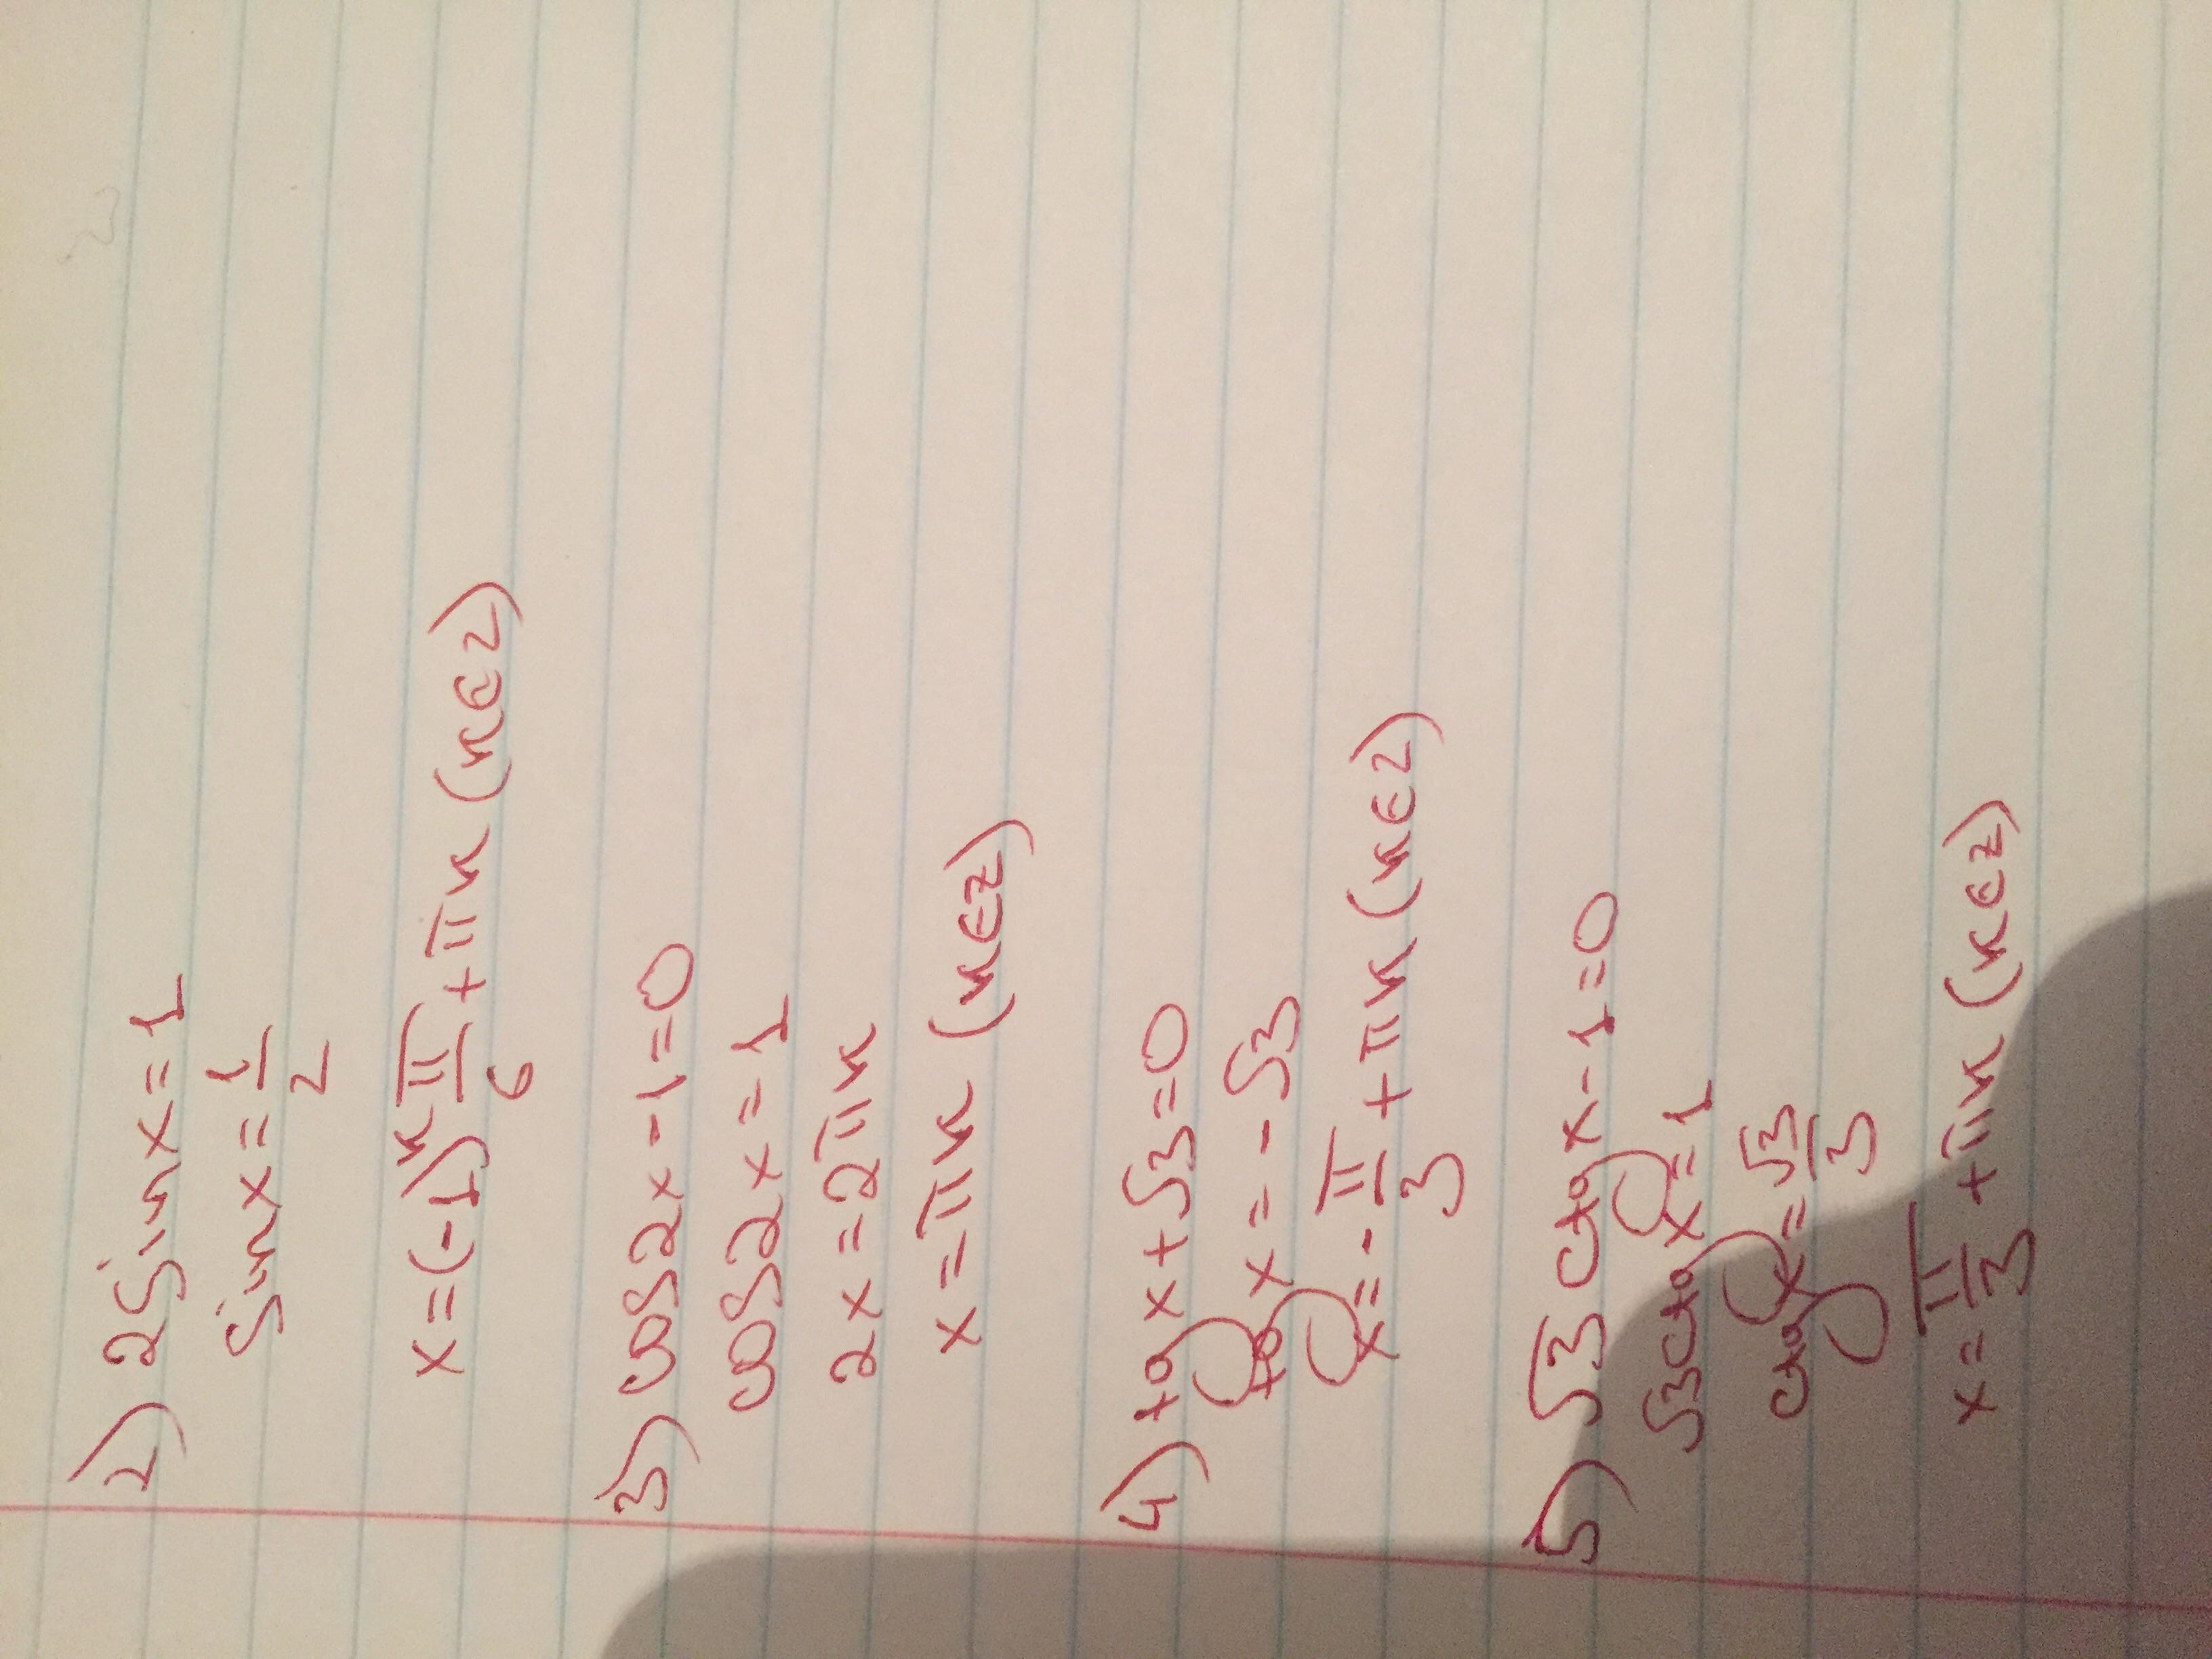 2) 2sinx=1
sinx=1/2
x=(-1)ⁿ π/6+πn (n∈z)
3) cos2x-1=0
cos2x=1
2x=2πn
x=πn (n∈z)
4) tgx+√3=0
tgx=-√3
x=-π/3+πn (n∈z)
5) √3ctgx-1=0
√3ctgx=1
ctgx=√3/3
x=π/3+πn (n∈z)